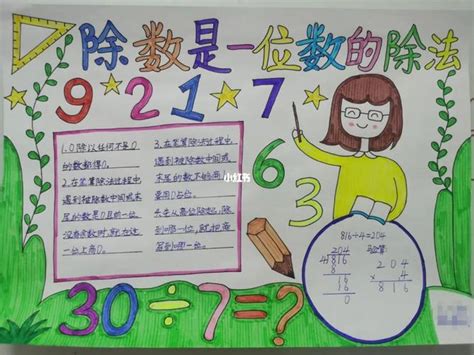 除数是一位数的除法
9 2 1 7
6
3
1.0除以任何不是0
的数都得0。
2.在笔算除法过程中
遇到被除数中间或末
尾的数是0且前一位
没有余数时,就在这
一位上商0。
3.在笔算除法过程中,
遇到被除数中间或
末尾的数不够商1,
要用0占位。
先从高位除起,除
到哪一位,就把商
写到哪一位。
小红书
816÷4=204
204
4 816
8
16
16
0
验算:
204
× 4
816
30÷7=?